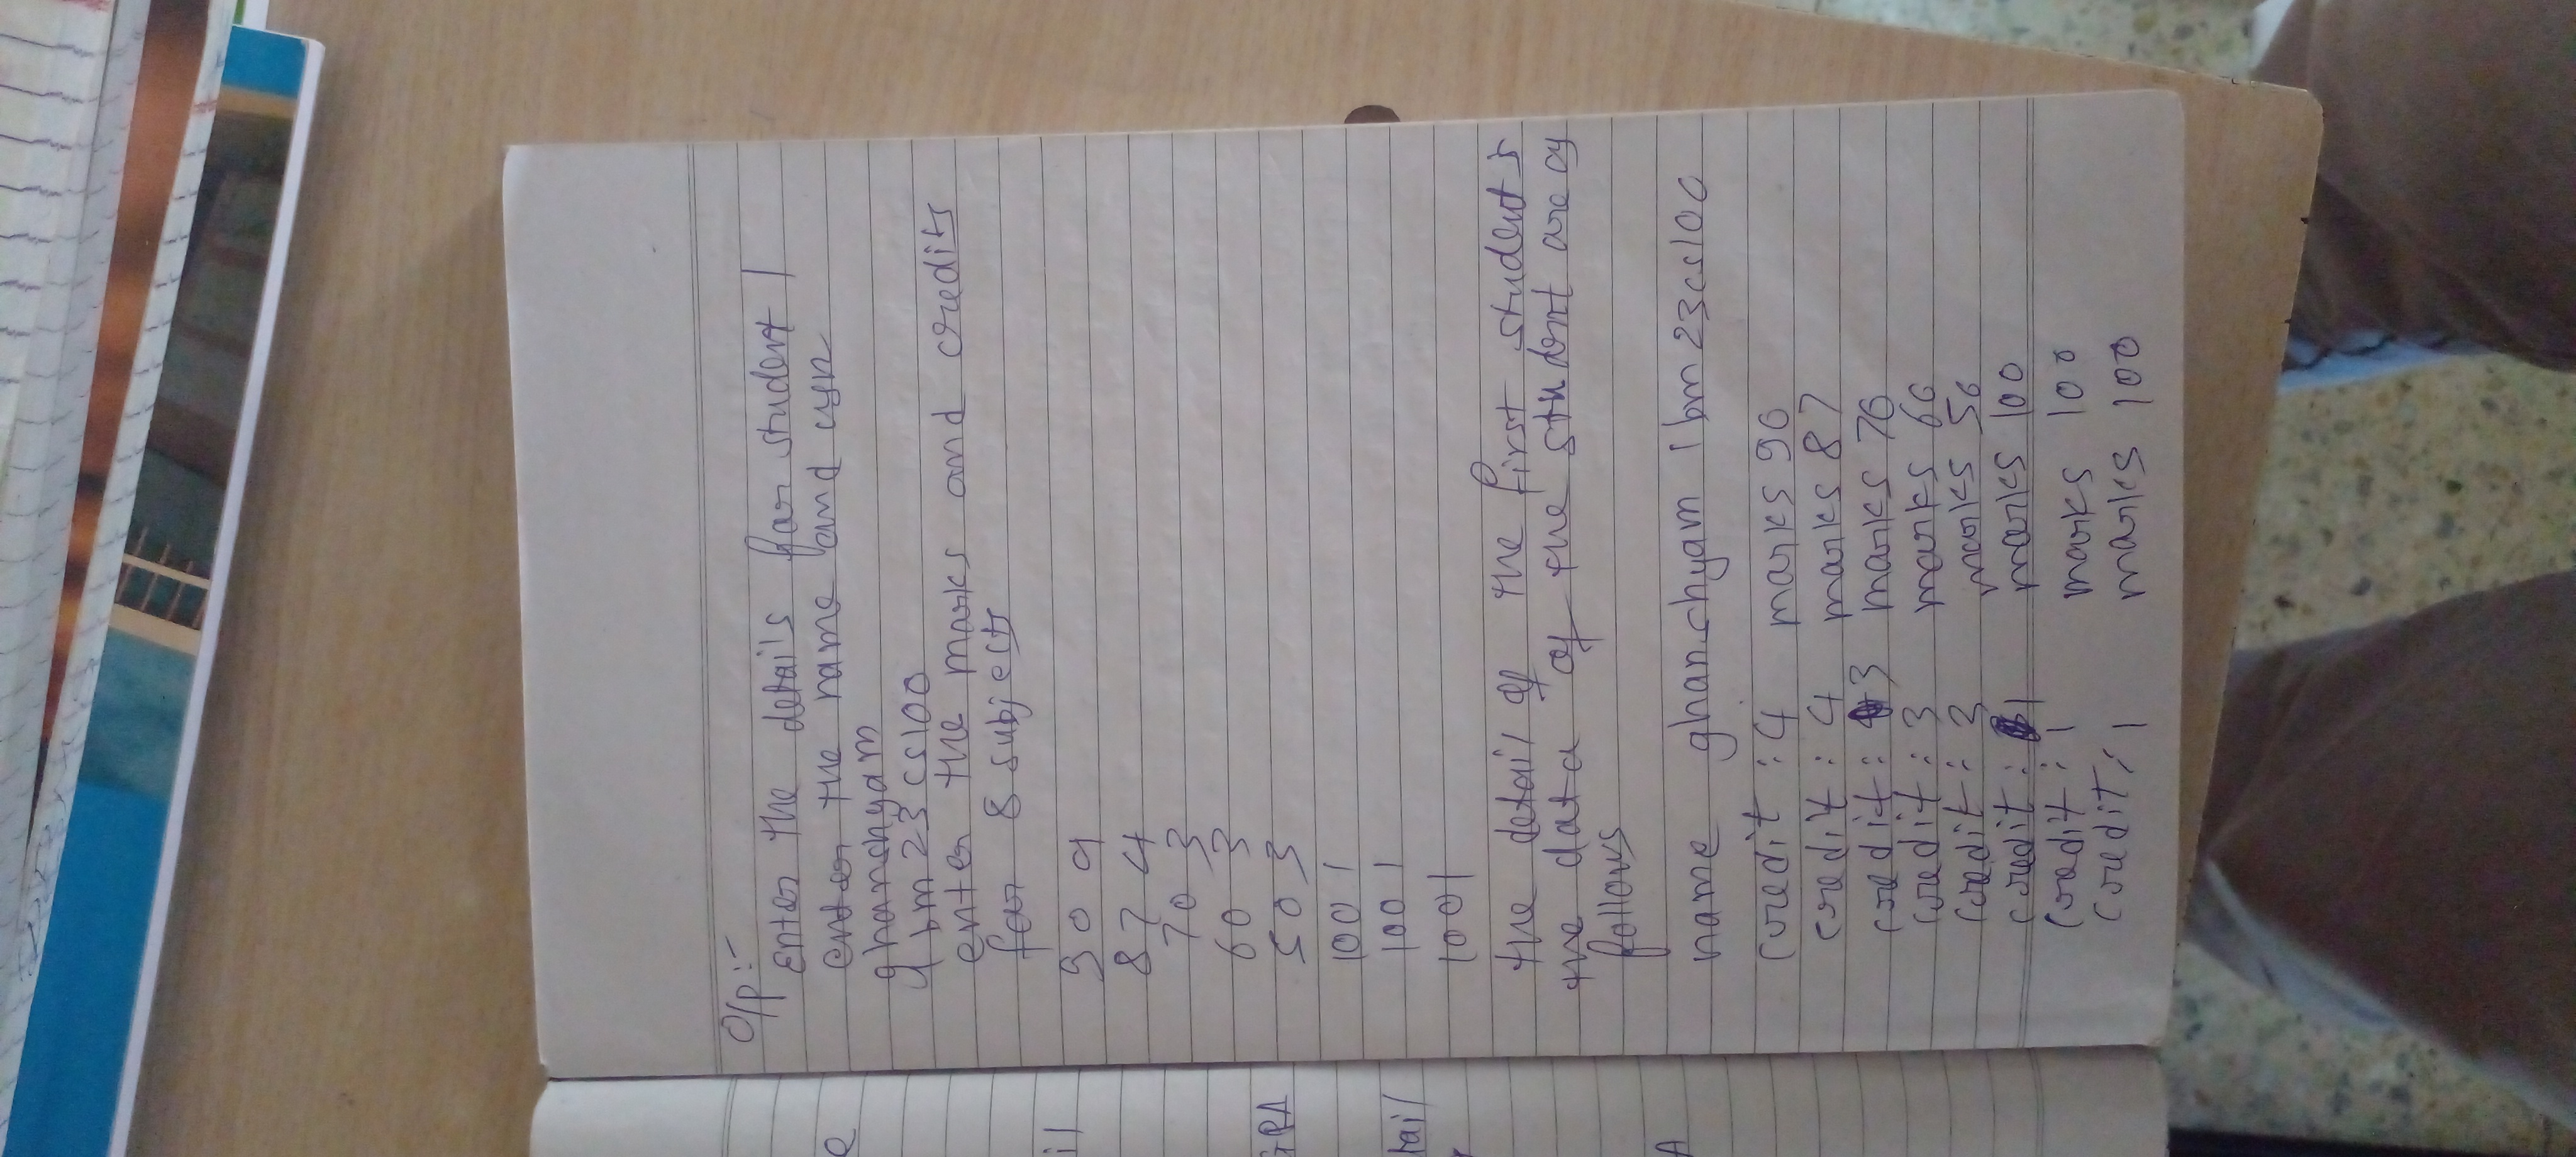 e
il
GPA
tail
A
O/p:-
Enter the details for student 1
enter the name and usn
ghanshyam
1bm23cs100
enter the marks and credits
for 8 subjects
90 4
87 4
70 3
60 3
50 3
100 1
100 1
100 1
the detail of the first student is
the data of the student are as
follows
name ghanshyam 1bm23cs100
credit : 4 marks 90
credit : 4 marks 87
credit : 3 marks 70
credit : 3 marks 60
credit : 3 marks 50
credit : 1 marks 100
credit : 1 marks 100
credit : 1 marks 100